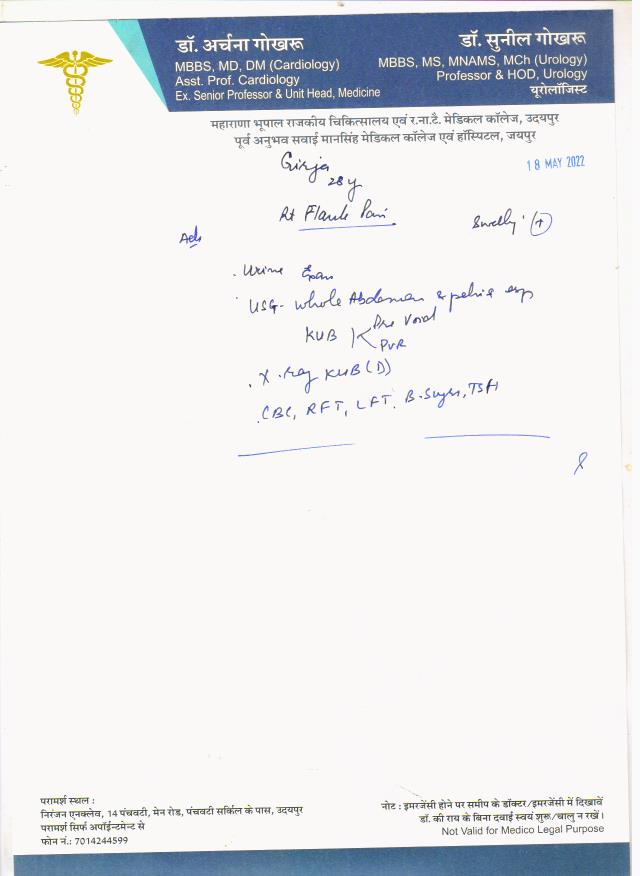 डॉ. अर्चना गोखरू
MBBS, MD, DM (Cardiology)
Asst. Prof. Cardiology
Ex. Senior Professor & Unit Head, Medicine
डॉ. सुनील गोखरू
MBBS, MS, MNAMS, MCh (Urology)
Professor & HOD, Urology
यूरोलॉजिस्ट
महाराणा भूपाल राजकीय चिकित्सालय एवं र.ना.टै. मेडिकल कॉलेज, उदयपुर
पूर्व अनुभव सवाई मानसिंह मेडिकल कॉलेज एवं हॉस्पिटल, जयपुर
18 MAY 2022
Girja
28y
Rt Flank Pain
Swelly (+)
Adv
. Urine Exam
USG- Whole Abdomen & pelvis esp
KUB Pre Void
PVR
. X-ray KUB (D)
. CBC, RFT, LFT, B. Sugar, TSH
परामर्श स्थल :
निरंजन एनक्लेव, 14 पंचवटी, मेन रोड, पंचवटी सर्किल के पास, उदयपुर
परामर्श सिर्फ अपॉईन्टमेन्ट से
फोन नं.: 7014244599
नोट : इमरजेंसी होने पर समीप के डॉक्टर/इमरजेंसी में दिखावें
डॉ. की राय के बिना दवाई स्वयं शुरू/चालु न रखें।
Not Valid for Medico Legal Purpose